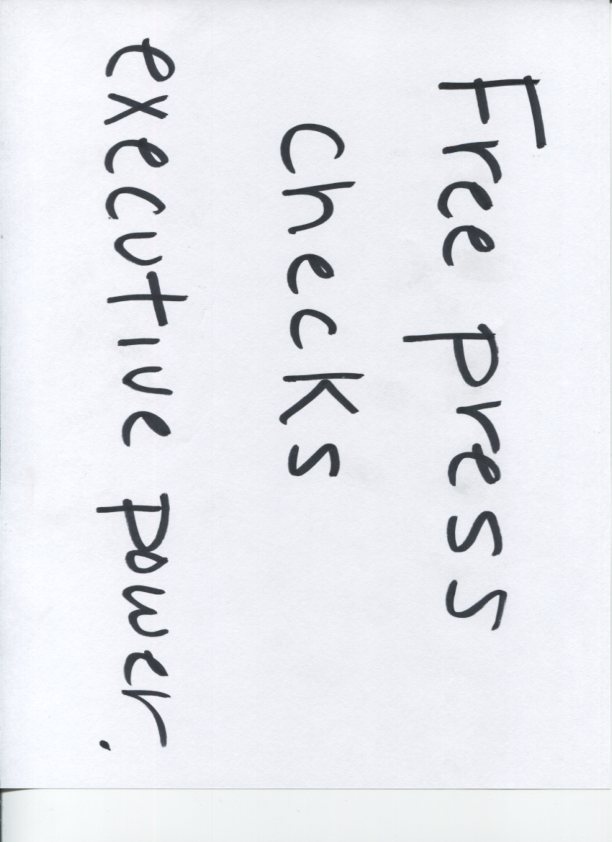 Free press
checks
executive power.